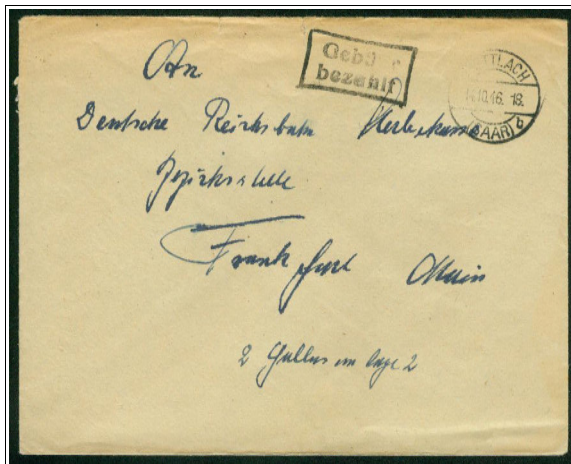 Gebühr
bezahlt
METTLACH
14.10.46. 18.
(SAAR) b
An
Deutsche Reichsbahn Sterbekasse
Bezirksstelle
Frankfurt Main
2 Gallusanlage 2